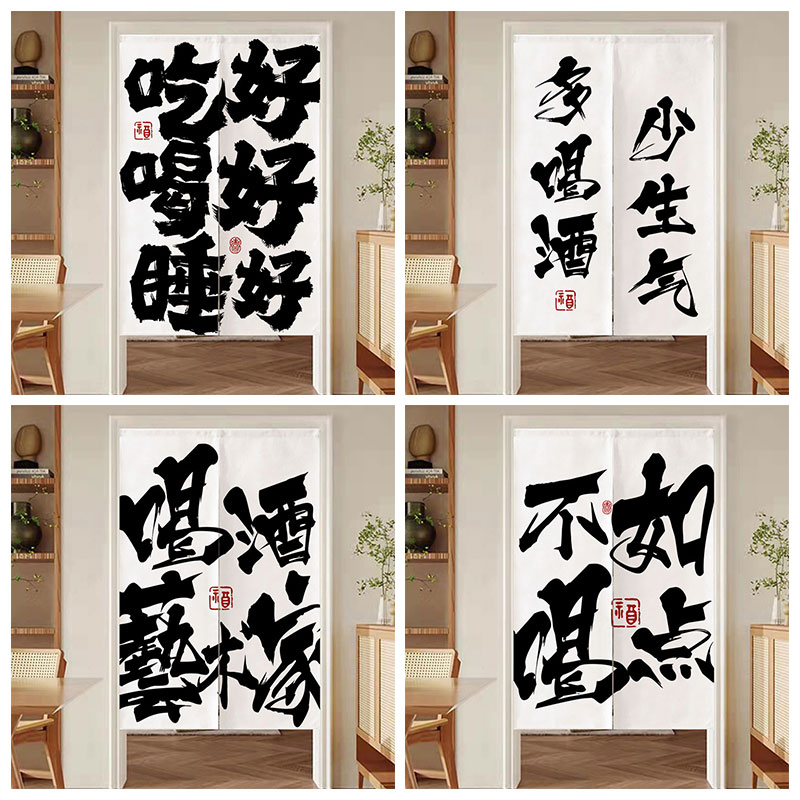 好好好
吃喝睡
少生气
多喝酒
喝酒
藝术家
不如
喝点